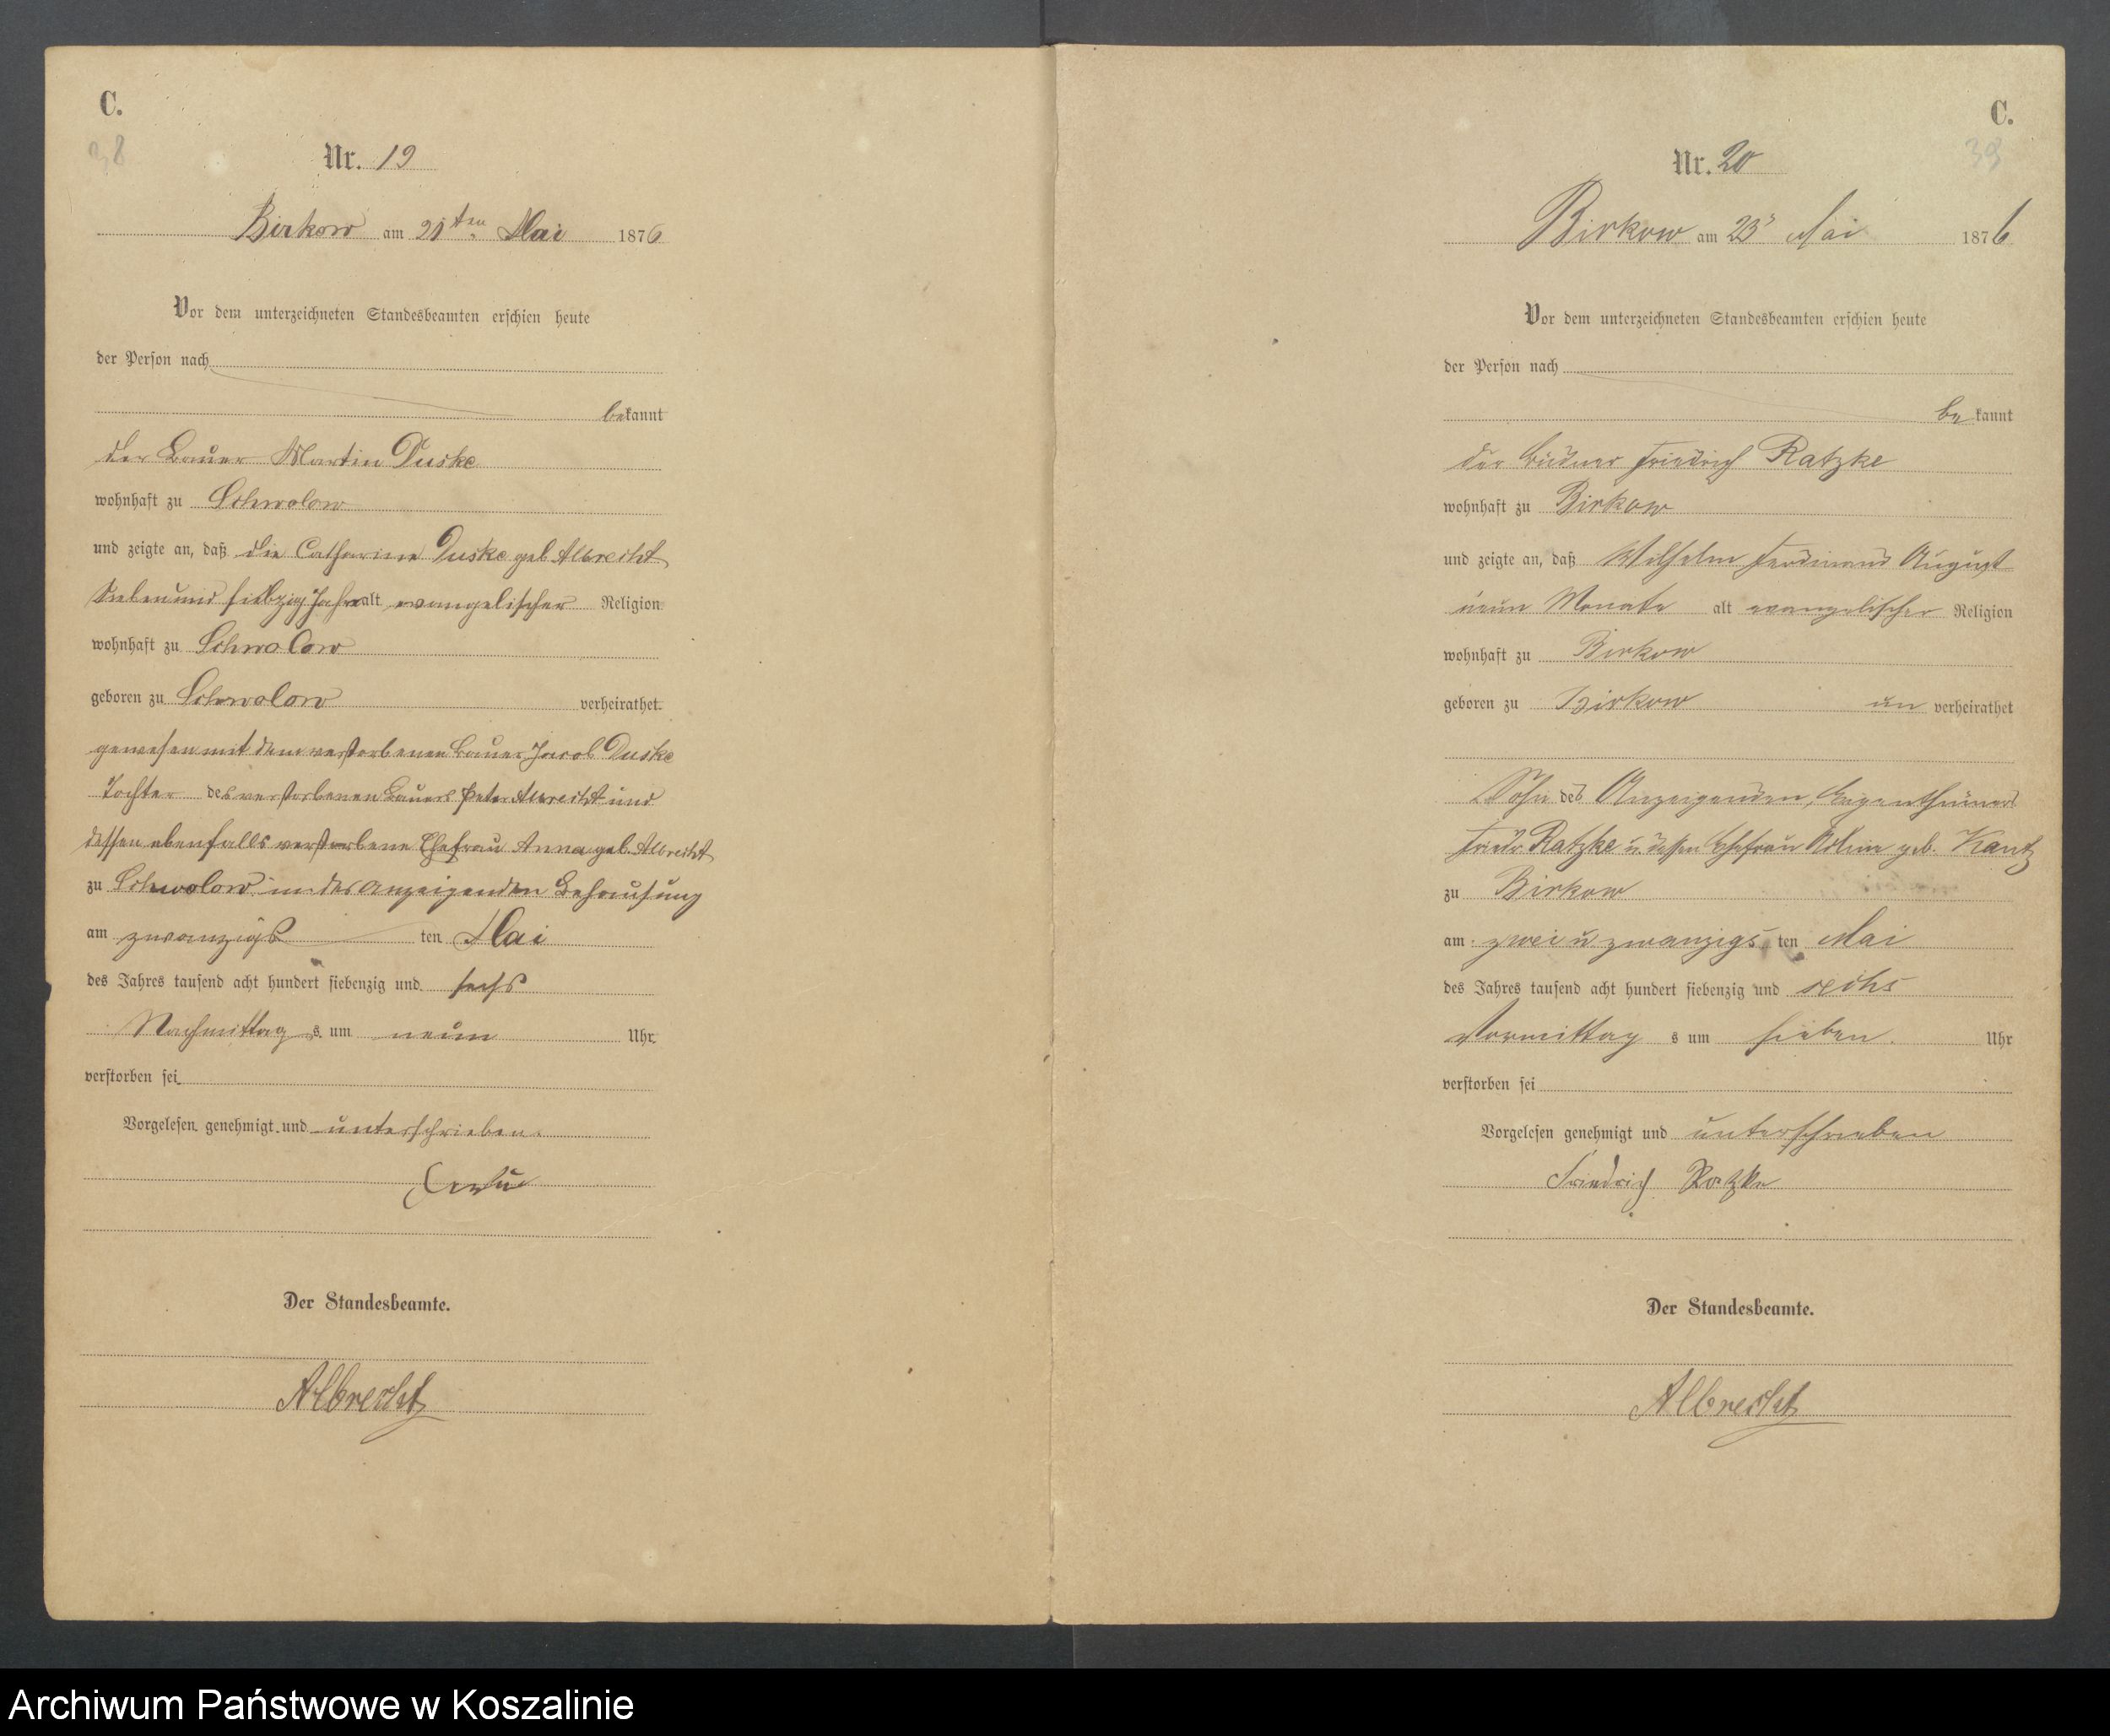 C.
38
Nr. 19
Birkow am 21ten Mai 1876
Vor dem unterzeichneten Standesbeamten erschien heute
der Person nach
bekannt
der Bauer Martin Duske
wohnhaft zu Schwolow
und zeigte an, daß die Catharine Duske geb Albrecht
Siebenund siebzig Jahre alt evangelischer Religion
wohnhaft zu Schwolow
geboren zu Schwolow verheirathet
gewesen mit dem verstorbenen Bauer Jacob Duske
Tochter des verstorbenen Bauers Peter Albrecht und
dessen ebenfalls verstorbene Ehefrau Anna geb. Albrecht
zu Schwolow in des Anzeigenden Behausung
am zwanzigs ten Mai
des Jahres tausend acht hundert siebenzig und sechs
Nachmittag s um neun Uhr
verstorben sei
Vorgelesen, genehmigt und unterschrieben.
Der Standesbeamte.
Albrecht
C.
39
Nr. 20
Birkow am 23 Mai 1876
Vor dem unterzeichneten Standesbeamten erschien heute
der Person nach
be kannt
der Büdner Friedrich Ratzke
wohnhaft zu Birkow
und zeigte an, daß Wilhelm Ferdinand August
neun Monate alt evangelischer Religion
wohnhaft zu Birkow
geboren zu Birkow un verheirathet
Sohn des Anzeigenden, Eigenthümers
Friedr Ratzke u. dessen Ehefrau geb. Kantz
zu Birkow
am zwei u zwanzigs ten Mai
des Jahres tausend acht hundert siebenzig und sechs
Vormittag s um sieben Uhr
verstorben sei
Vorgelesen genehmigt und unterschrieben
Friedrich Ratzke
Der Standesbeamte.
Albrecht
Archiwum Państwowe w Koszalinie